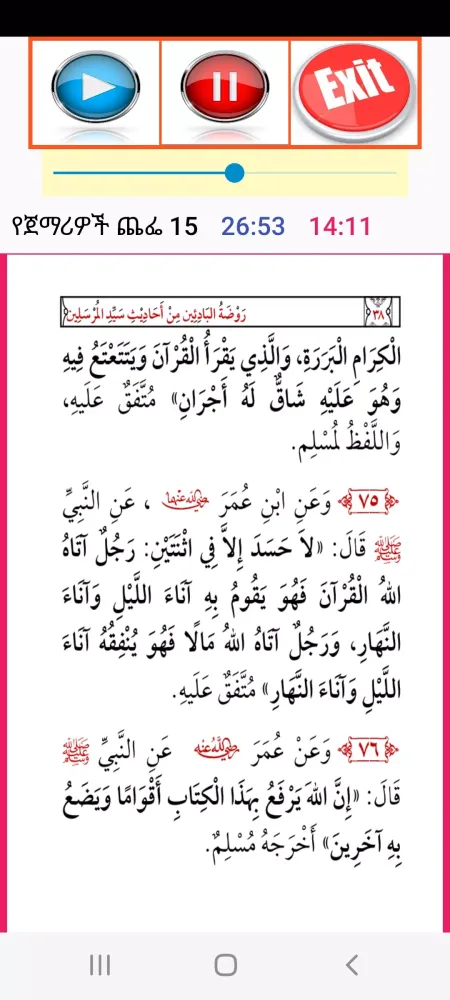 Exit
የጀማሪዎች ጨፌ 15 26:53 14:11
٣٨ رَوْضَةُ البَادِئِين مِنْ أَحَادِيْثِ سَيِّدِ المُرْسَلِين
الْكِرَامِ الْبَرَرَةِ، وَالَّذِي يَقْرَأُ الْقُرْآنَ وَيَتَتَعْتَعُ فِيهِ
وَهُوَ عَلَيْهِ شَاقٌّ لَهُ أَجْرَانِ» مُتَّفَقٌ عَلَيهِ،
وَاللَّفْظُ لمُسْلِمٍ.
﴿٧٥﴾ وَعَنِ ابْنِ عُمَرَ رضي الله عنهما ، عَنِ النَّبِيِّ
ﷺ قَالَ: «لاَ حَسَدَ إِلاَّ فِي اثْنَتَيْنِ: رَجُلٌ آتَاهُ
اللهُ الْقُرْآنَ فَهُوَ يَقُومُ بِهِ آنَاءَ اللَّيْلِ وَآنَاءَ
النَّهَارِ، وَرَجُلٌ آتَاهُ اللهُ مَالًا فَهُوَ يُنْفِقُهُ آنَاءَ
اللَّيْلِ وَآنَاءَ النَّهَارِ» مُتَّفَقٌ عَلَيهِ.
﴿٧٦﴾ وَعَنْ عُمَرَ رضي الله عنه عَنِ النَّبِيِّ ﷺ
قَالَ: «إِنَّ اللهَ يَرْفَعُ بِهَذَا الْكِتَابِ أَقْوَامًا وَيَضَعُ
بِهِ آخَرِينَ» أَخْرَجَهُ مُسْلِمٌ.